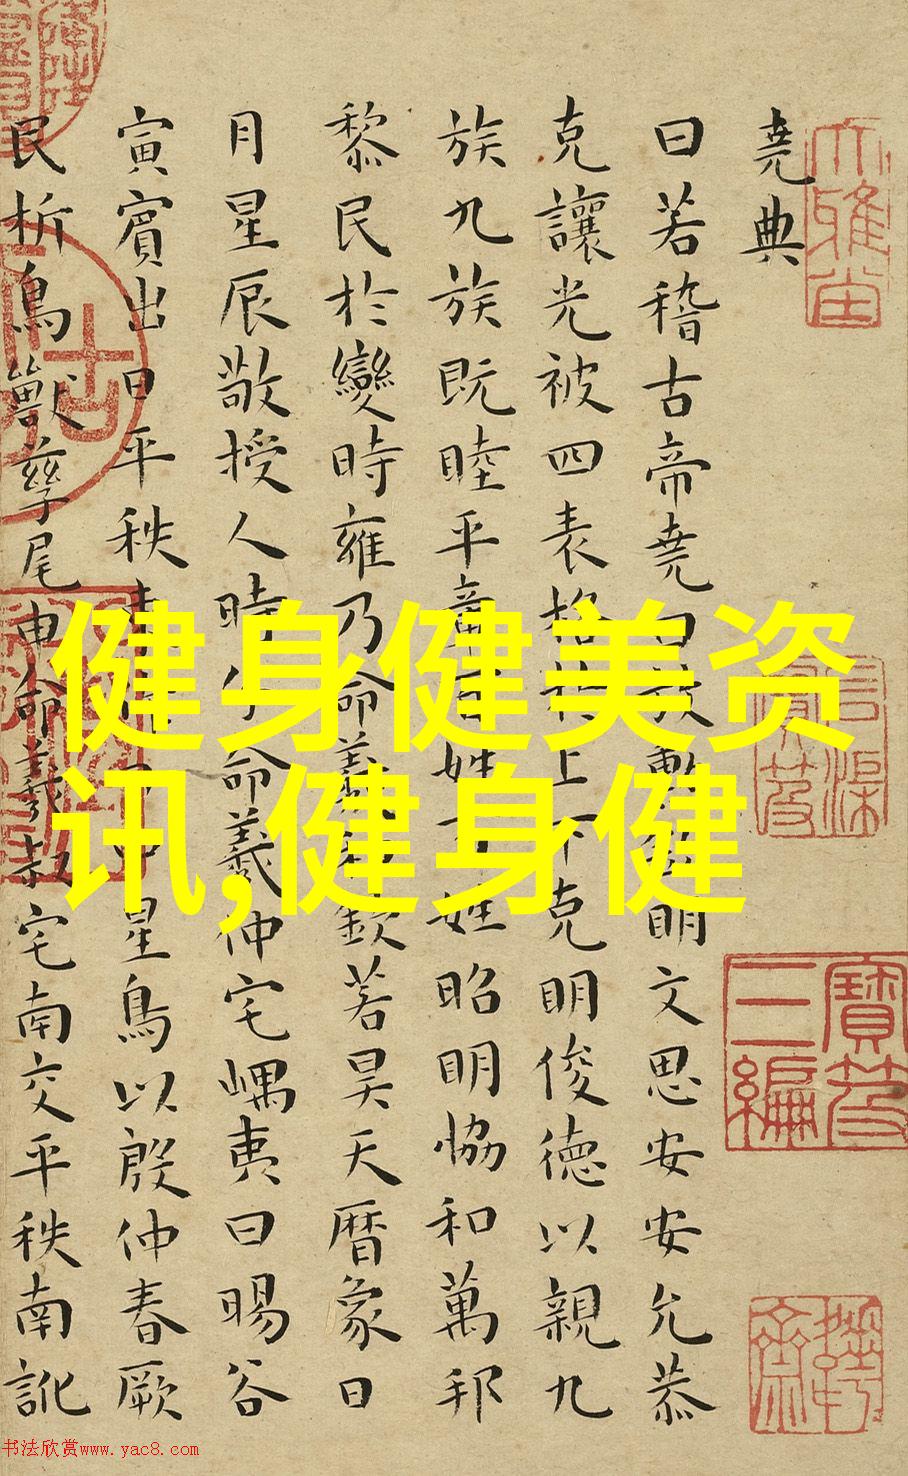 堯典
曰若稽古帝堯曰放勳欽明文思安安允恭
克讓光被四表格於上下克明俊德以親九
族九族既睦平章百姓百姓昭明恊和萬邦
黎民於變時雍乃命羲和欽若昊天曆象日
月星辰敬授人時分命羲仲宅嵎夷曰暘谷
寅賓出日平秩東作日中星鳥以殷仲春厥
民析鳥獸孳尾申命羲叔宅南交平秩南訛
健身健美资
讯,健身健
寶笈
三編
书法欣赏www.yac8.com